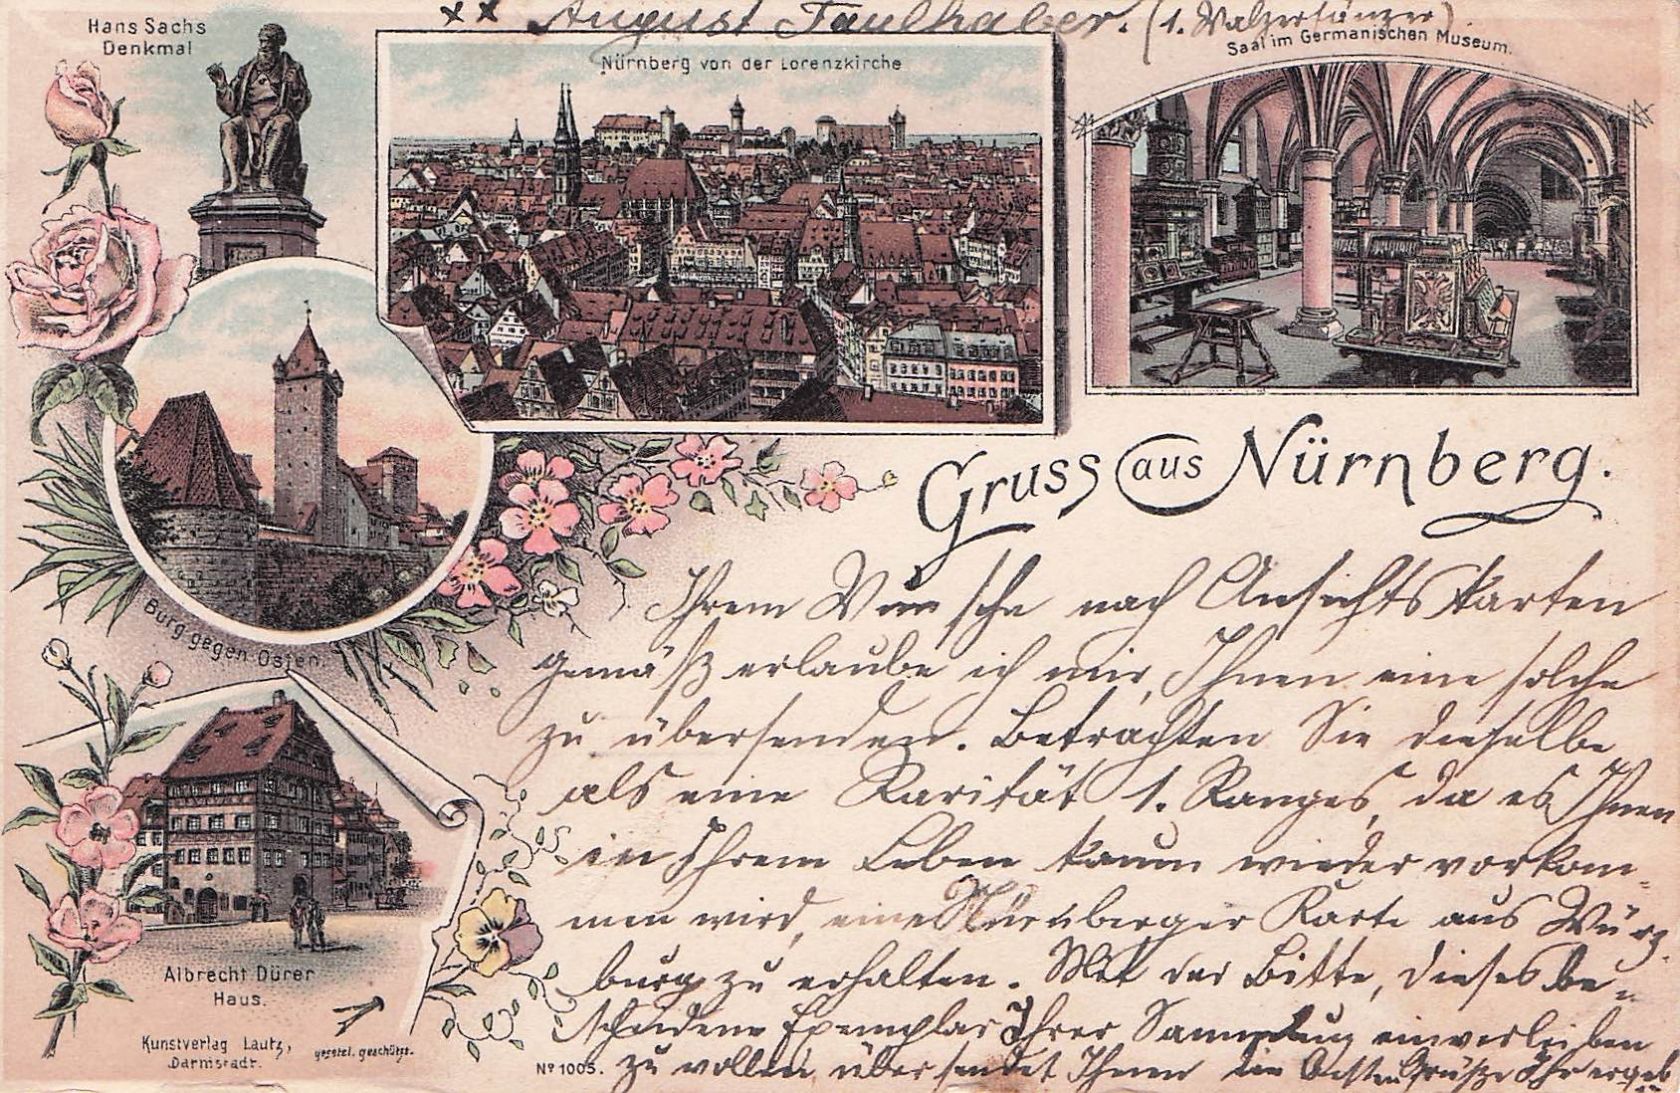 x x August Faulhaber. (1. Walzertänzer)
Hans Sachs
Denkmal
Nürnberg von der Lorenzkirche
Saal im Germanischen Museum.
Gruss aus Nürnberg.
Burg gegen Osten.
Albrecht Dürer
Haus.
Kunstverlag Lautz,
Darmstadt.
gesetzl. geschützt.
Nº 1005.
Ihrem Wunsche nach Ansichtskarten
gemäß erlaube ich mir, Ihnen eine solche
zu übersenden. Betrachten Sie dieselbe
als eine Rarität 1. Ranges, da es Ihnen
in Ihrem Leben kaum wieder vorkom-
men wird, eine Nürnberger Karte aus Würz-
burg zu erhalten. Mit der Bitte, dieses be-
scheidene Exemplar Ihrer Sammlung einverleiben
zu wollen, übersendet Ihnen die besten Grüße Ihr ergeb